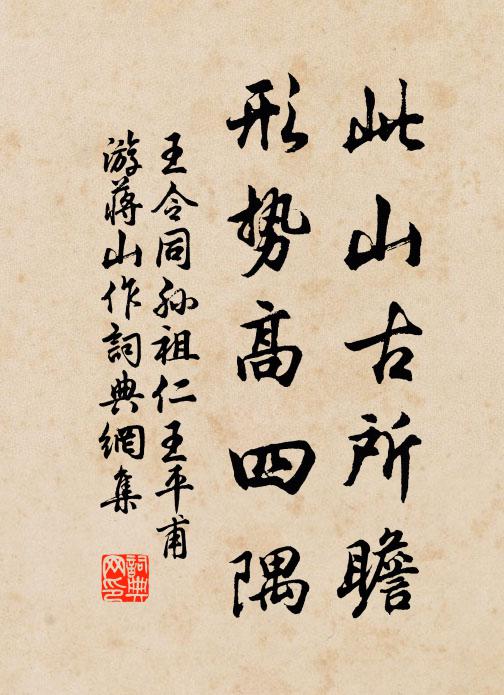 此山古所瞻
形势高四隅
王令同孙祖仁王平甫
游蔣山作詞典網集
詞典网印